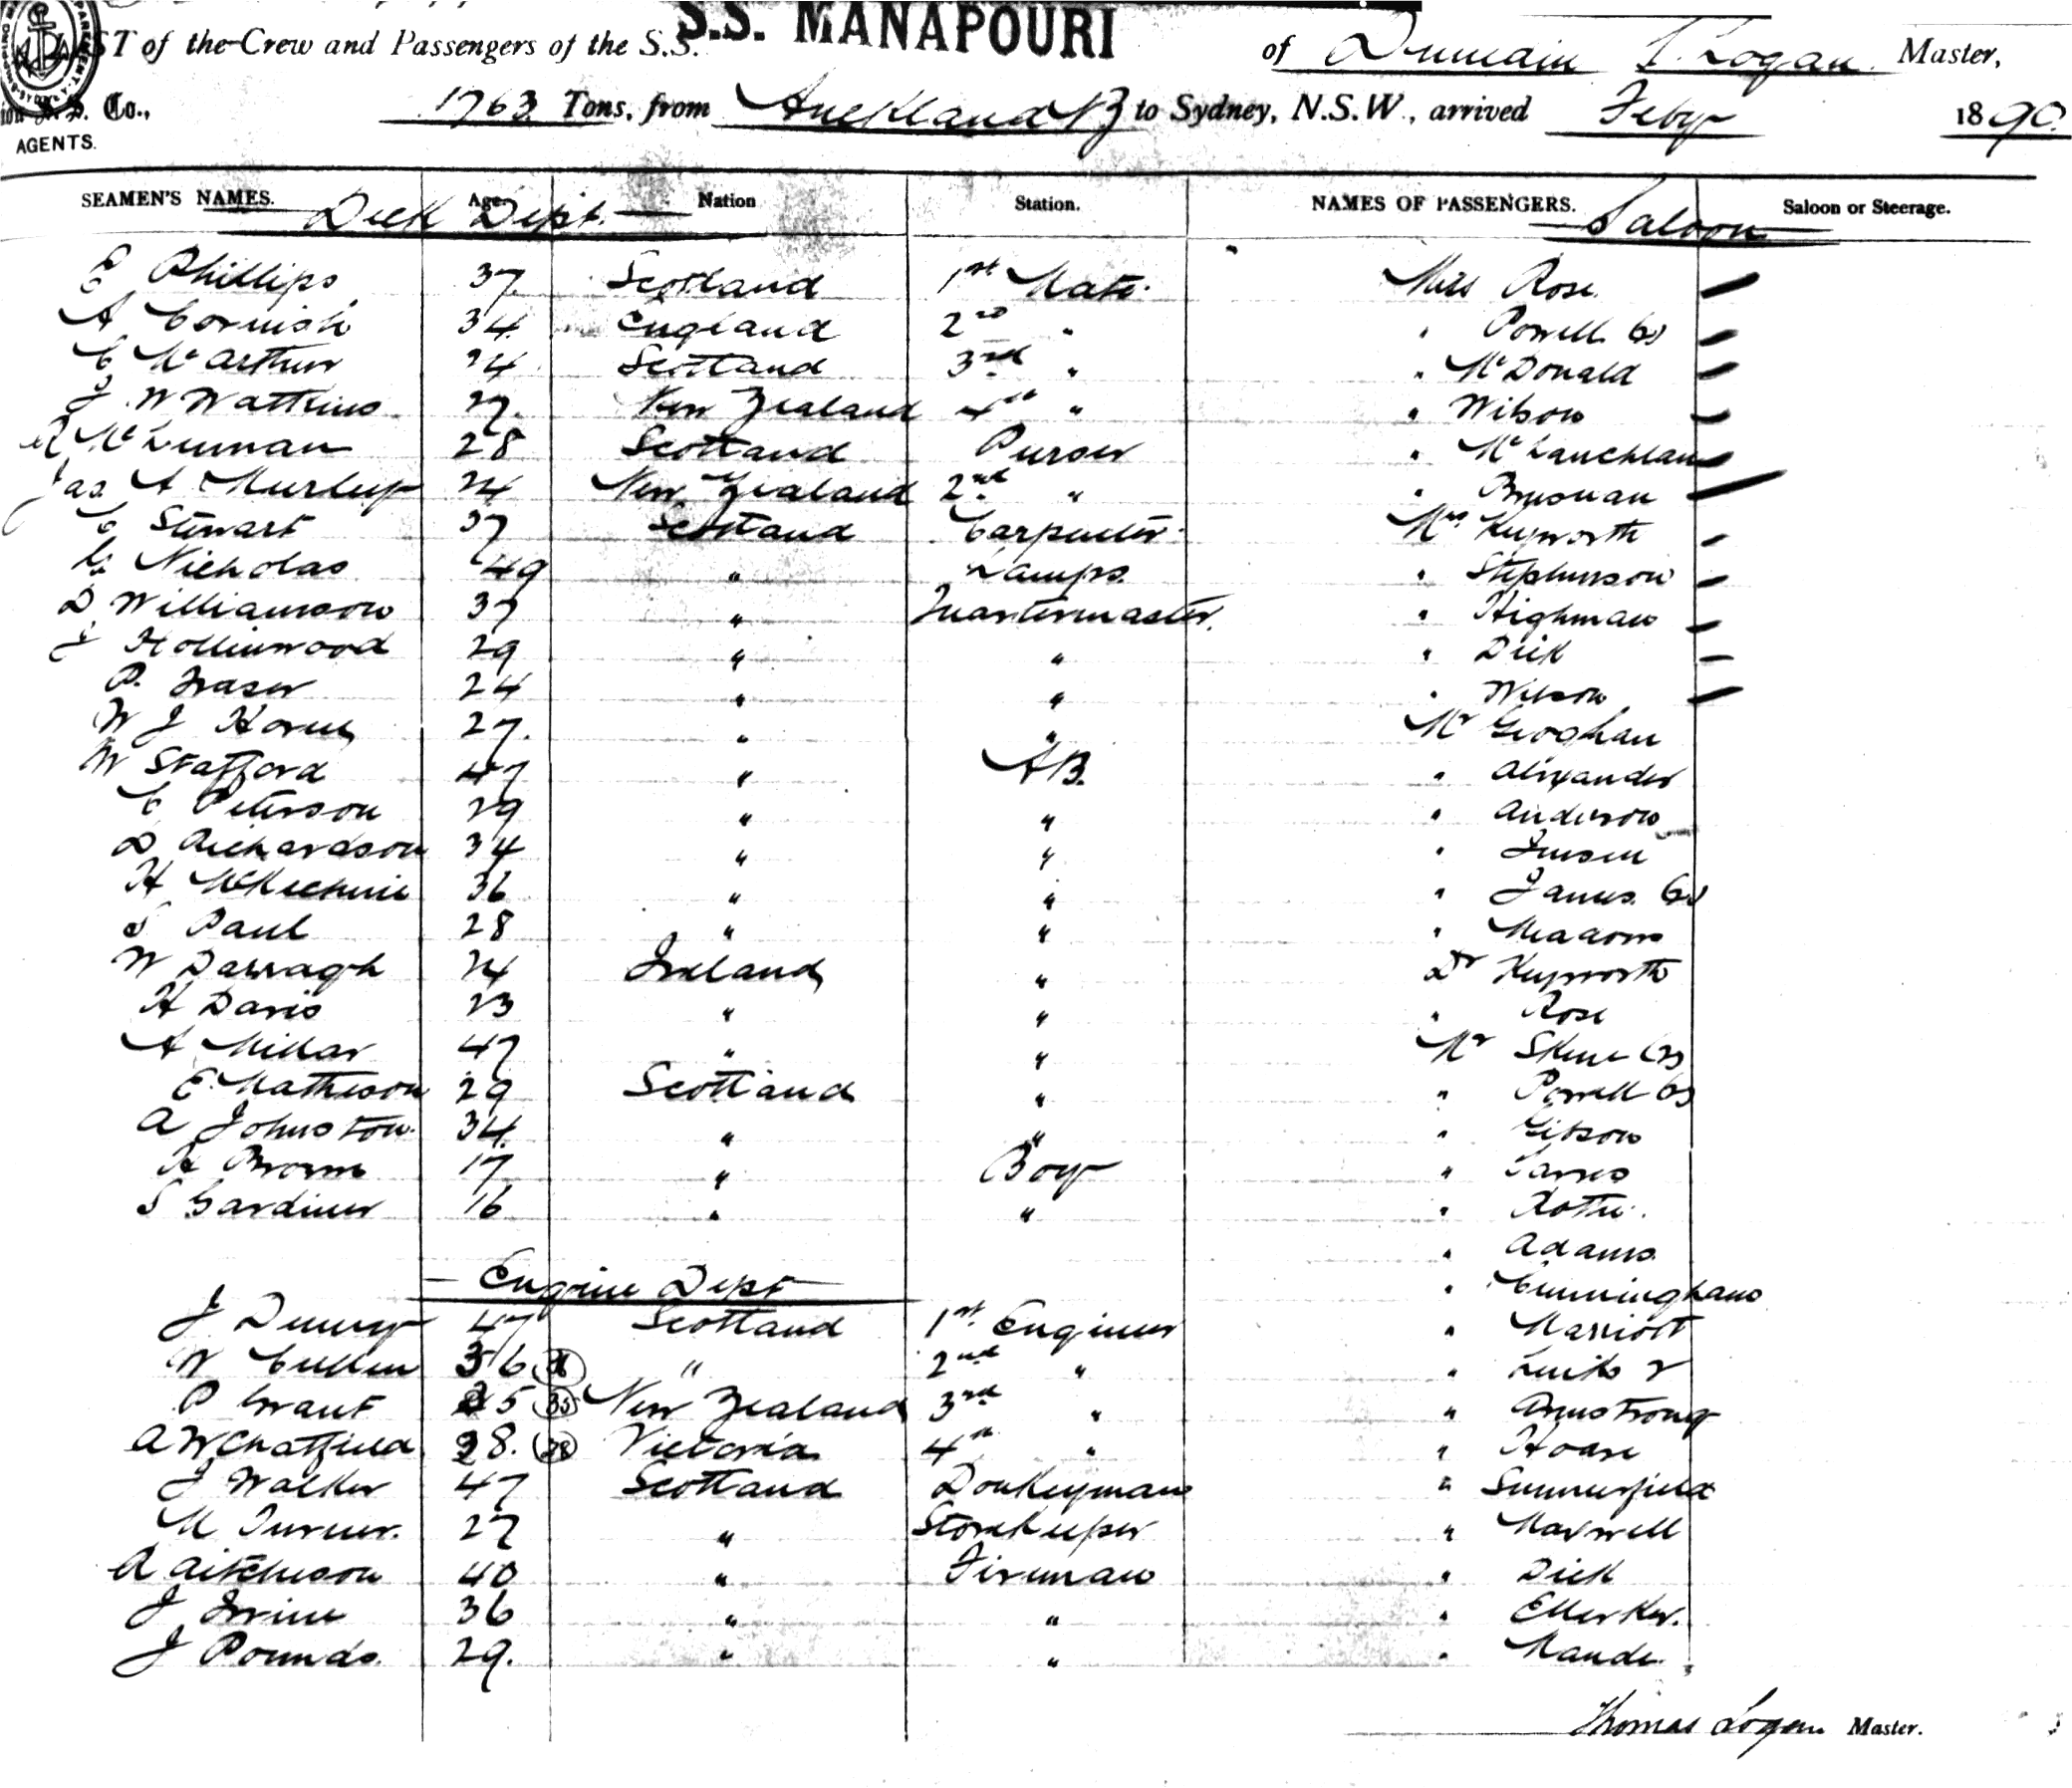 S.S. MANAPOURI
of the Crew and Passengers of the S.S. of Dunedin T. Logan Master,
Co., 1763 Tons, from Auckland NZ to Sydney, N.S.W., arrived Feby 1890.
AGENTS.
SEAMEN'S NAMES. Age Nation Station. NAMES OF PASSENGERS. Saloon or Steerage.
Deck Dept. Saloon
E Phillips 37 Scotland 1st Mate. Miss Rose
A Cornish 34 England 2nd " " Powell
C McArthur 24 Scotland 3rd " " McDonald
J W Watkins 27. New Zealand 4th " " Wilson
McLennan 28 Scotland Purser " McLauchlan
Jas A 24 New Zealand 2nd " " Brusnan
C Stewart 37 Scotland Carpenter. Mrs Keyworth
G Nicholas 49 " Lamps. " Stephenson
D Williamson 37 " Quartermaster. " Highman
J Hollinwood 29 " " " Dick
P. Fraser 24 " " " Wilson
W J Horne 27. " " Mr Geoghan
W Stafford 47 " AB. " Alexander
C Peterson 29 " " " Anderson
D Richardson 34 " " " Jensen
H McKechnie 36 " " " James
S Paul 28 " " " Meadows
W Darragh 24 Ireland " Dr Keyworth
H Davis 23 " " " Rose
A Millar 47 " " Mr Skene
E Matheson 29 Scotland " " Powell
A Johnston. 34 " " " Gibson
H Brown 17 " Boy "
S Gardiner 16 " " "
" Adams
Engine Dept " Cunningham
J 47 Scotland 1st Engineer " Marriott
W Cullen 36 " 2nd " "
P Grant 35 35 New Zealand 3rd " " Armstrong
A W Chatfield 28. 28 Victoria 4th " " Hoare
J Walker 47 Scotland Donkeyman " Summerfield
M Turner. 27 " Storekeeper " Maxwell
A Aitcheson 40 " Fireman " Dick
J Irvine 36 " " " Ellerker.
J Pounds. 29. " " " Maude.
Thomas Logan Master.